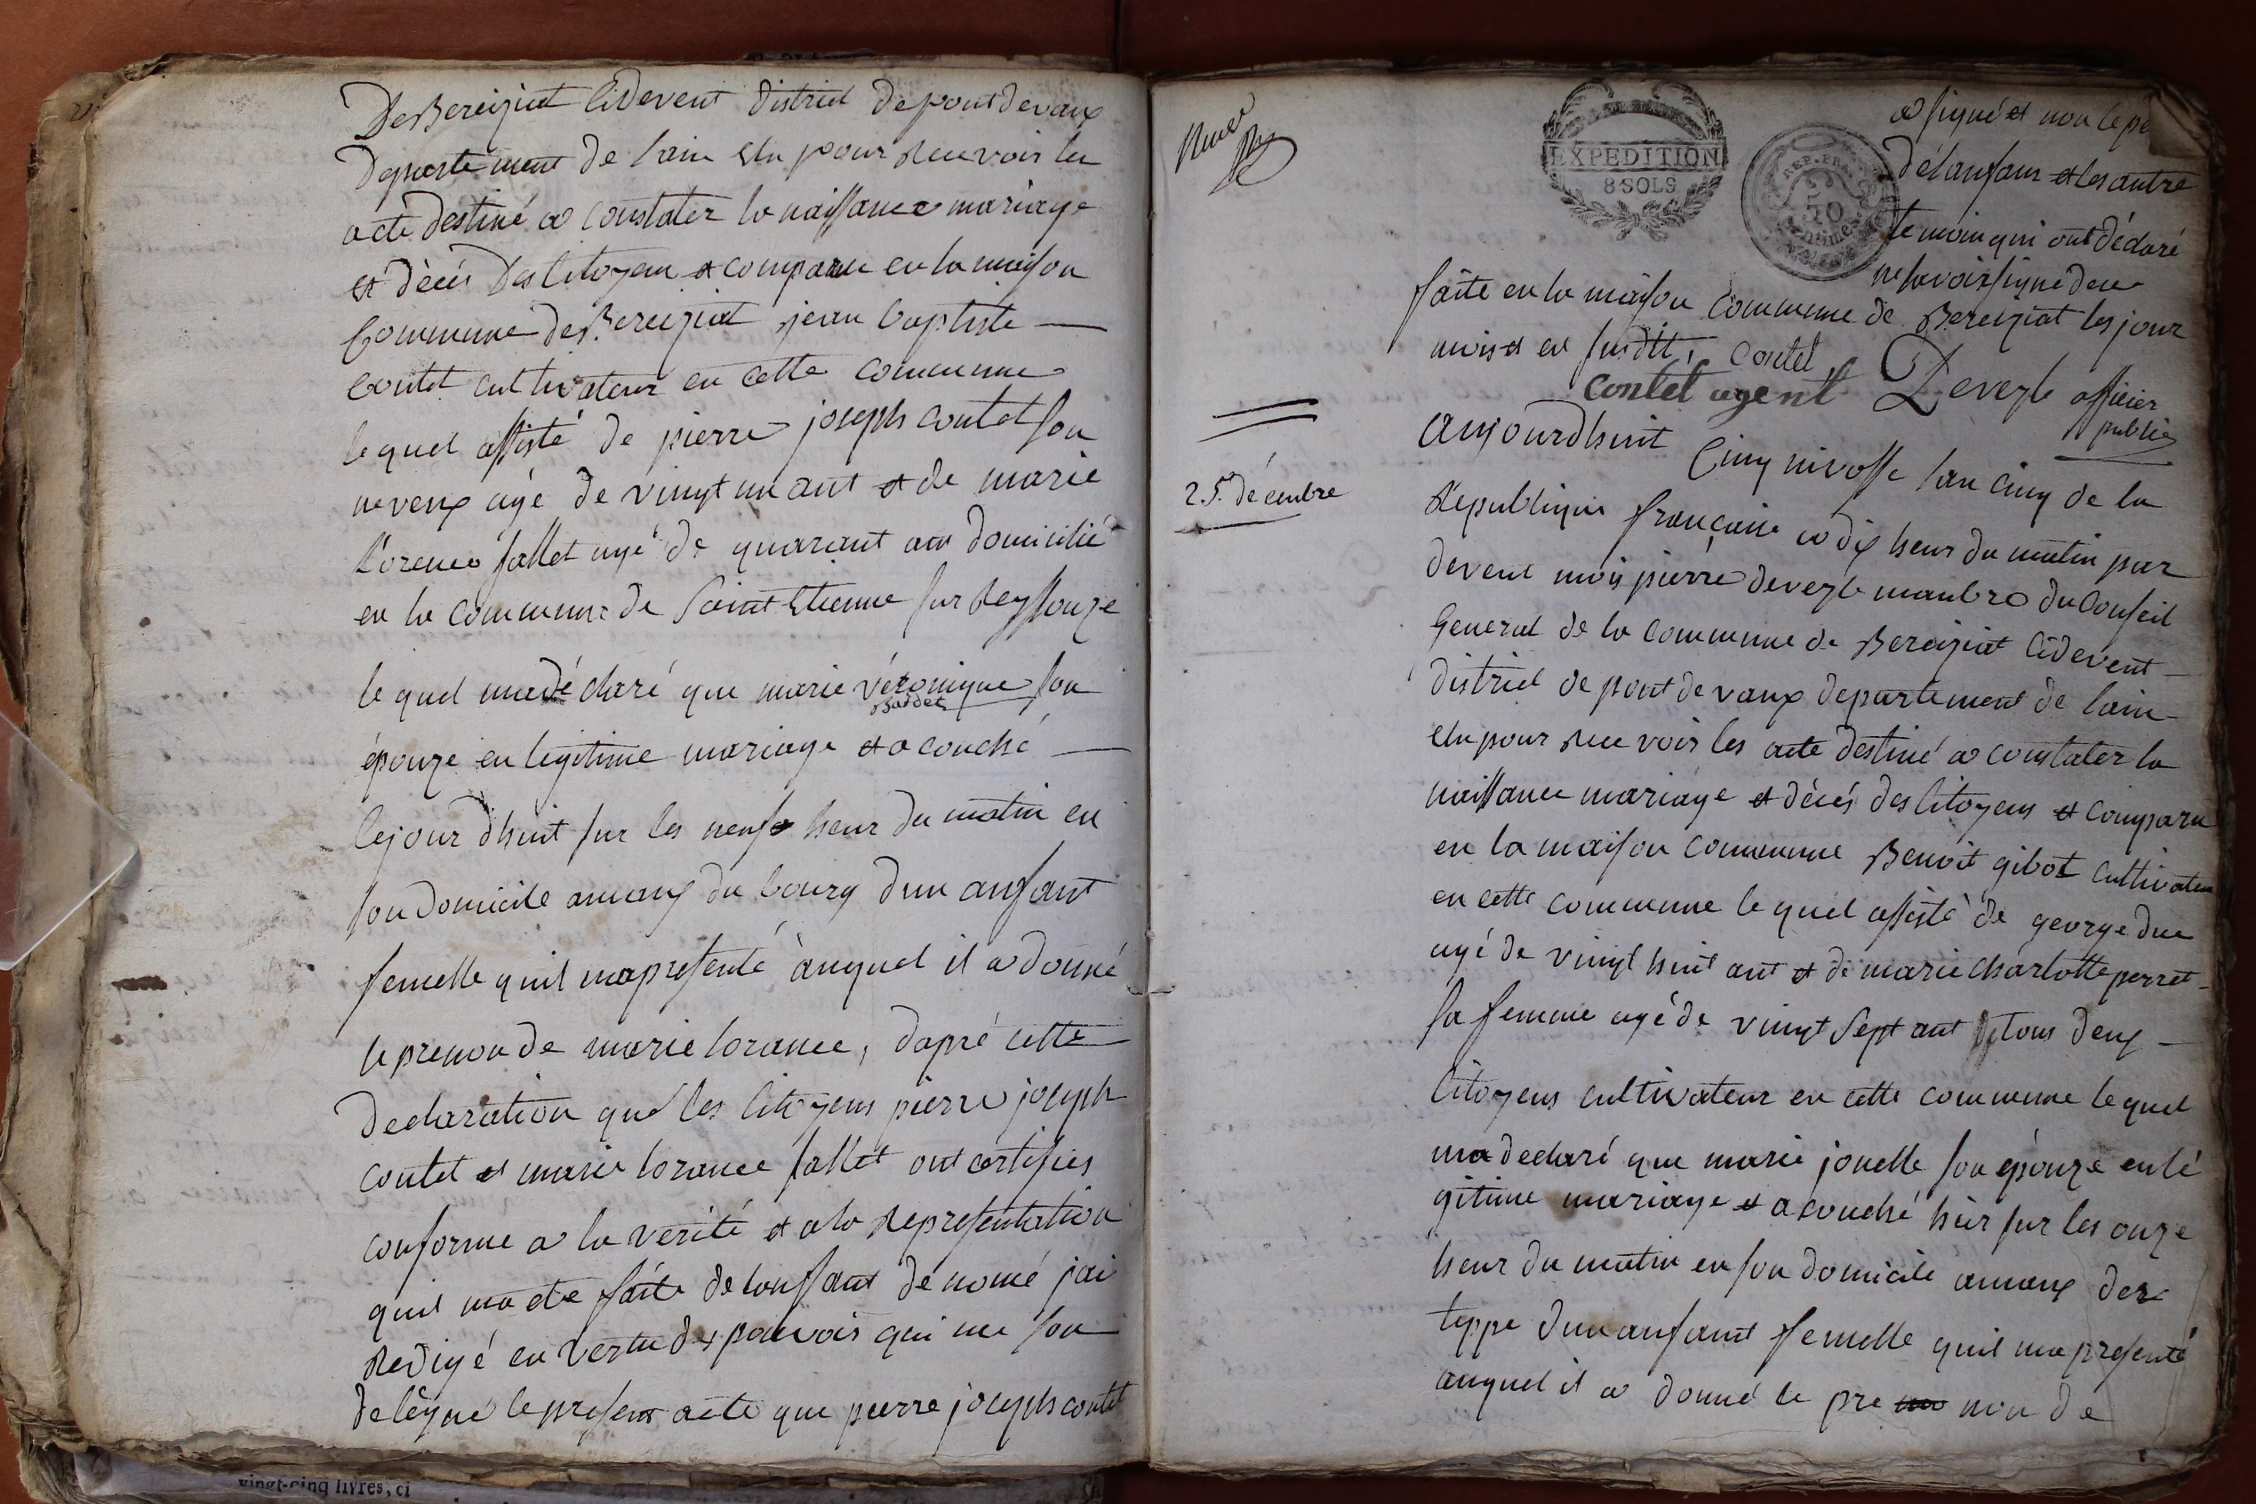 De Bereiziat cidevent district de pont de vaux
departement de lain elu pour recevoir les
acte destiné a constater la naissance mariage
et décés des citoyen et comparu en la maison
commune de Bereiziat jean baptiste
contet cultivateur en cette commune
le quel assisté de pierre joseph contet son
neveux agé de vingt un ant et de marie
lorence fallet agé de quarant ans domicilié
en la commune de saint etienne sur reyssouze
le quel ma déclaré que marie véronique son
Baddet
épouze en legitime mariage et a couché
lejour dhuit sur les neuf heur du matin en
son domicile amaux du bourg dun anfant
femelle quil ma presenté àuquel il a donné
le prenon de marie lorance, dapré cette
declaration que les citoyens pierre joseph
contet et marie lorance fallet ont certifies
conforme a la verité et a la representation
quil ma ete faite de lonffant dénomé jai
redigé en vertu des pouvoir qui me son
delégué le present acte que pierre joseph contet
a signé et non le pe
délanfans et les autre
temoin qui ont déclaré
ne savoir signe de ce
EXPEDITION
8 SOLS
REP. FRA.
50
centimes
faite en la maison commune de Bereiziat les jour
mois et en susdit, contet
contet agent Deveyle officier
public
25. décembre
aujourdhuit cinq nivosse lan cinq de la
republique française a dix heur du matin par
devent moi pierre deveyle manbre du conseil
general de la commune de Bereiziat cidevent
district de pont de vaux departement de lain
elu pour recevoir les acte destiné a constater la
naissance mariage et décés des citoyens et comparu
en la maison commune Benoit gibot cultivateur
en cette commune le quel assisté de george duc
agé de vingt huit ant et de marie charlotte perret
sa femme agé de vingt sept ant tous deux
citoyens cultivateur en cette commune le quel
ma declaré que marie jouelle son épouze en lé
gitime mariage et a couché hier sur les onze
heur du matin en son domicile amaux des
teppe dun anfant femelle quil ma presenté
auquel il a donné le pre non de
vingt-cinq livres, ci